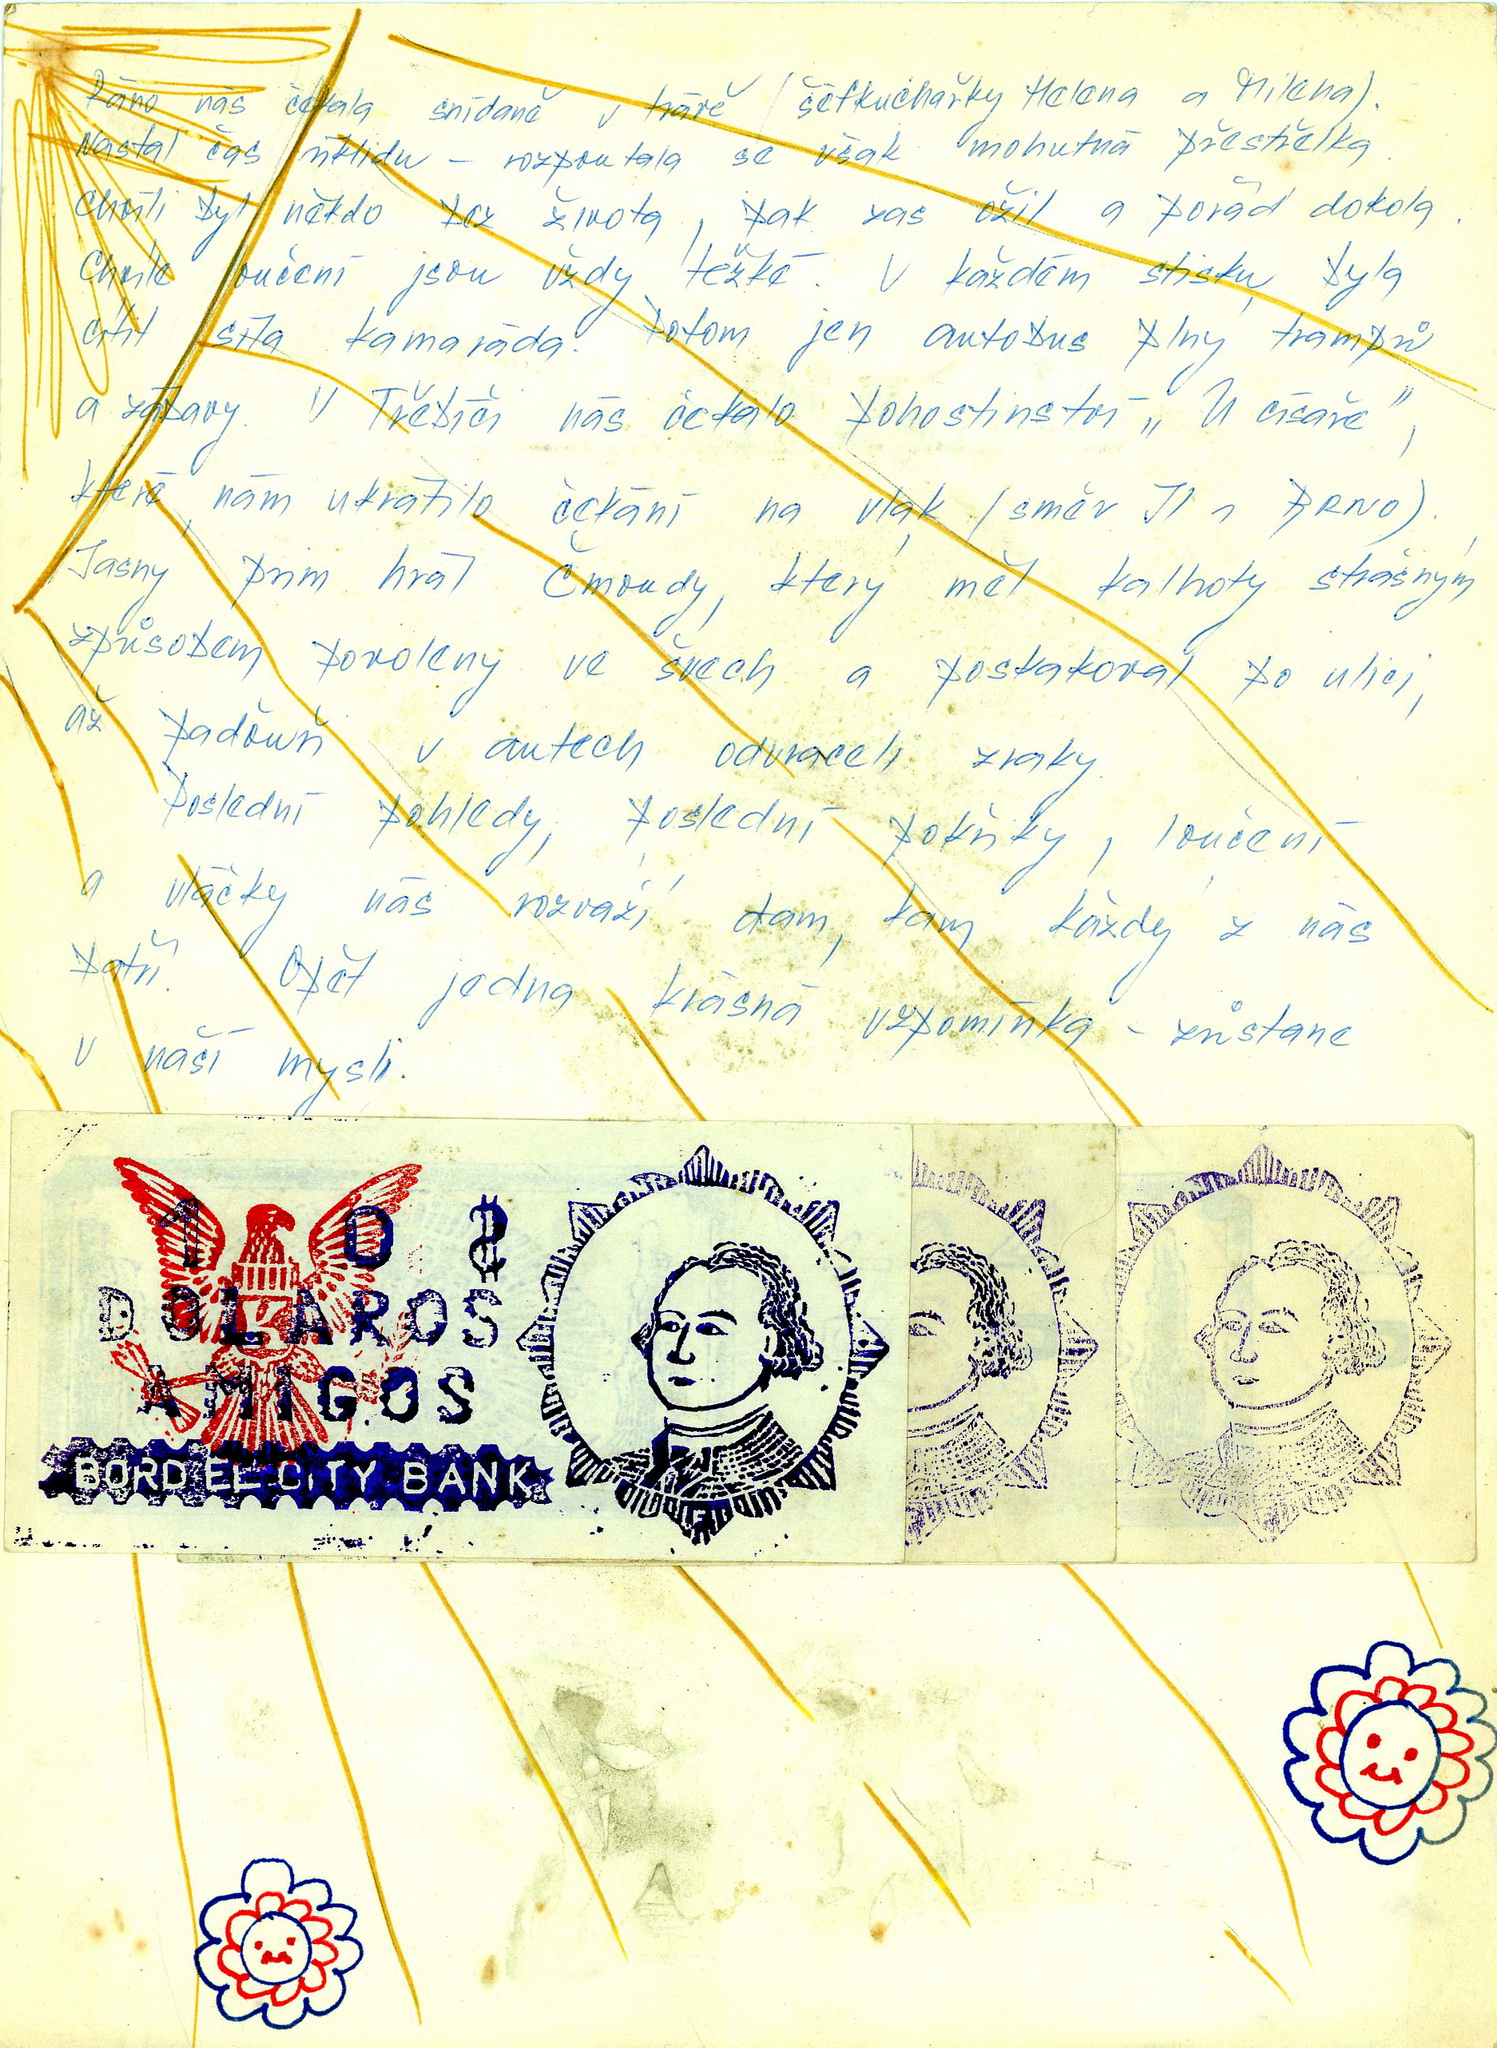 Ráno nás čekala snídaně v trávě (šéfkuchařky Helena a Milena).
Nastal čas úklidu – rozpoutala se však mohutná přestřelka.
Chvíli byl někdo bez života, pak zas ožil a pořád dokola.
Chvíle loučení jsou vždy těžké. V každém stisku byla
cítit síla kamaráda. Potom jen autobus plný trampů
a zábavy. V Třebíči nás čekalo pohostinství „U císaře",
které nám ukrátilo čekání na vlak (směr JI a BRNO).
Jasný prim hrál Čmoudy, který měl kalhoty strašným
způsobem povoleny ve švech a poskakoval po ulici,
až paďouři v autech odvraceli zraky.
Poslední pohledy, poslední pokřiky, loučení
a vláčky nás rozváží tam, kam každý z nás
patří. Opět jedna krásná vzpomínka – zůstane
v naší mysli.
1 D $
DOLAROS
AMIGOS
BORDEL CITY BANK